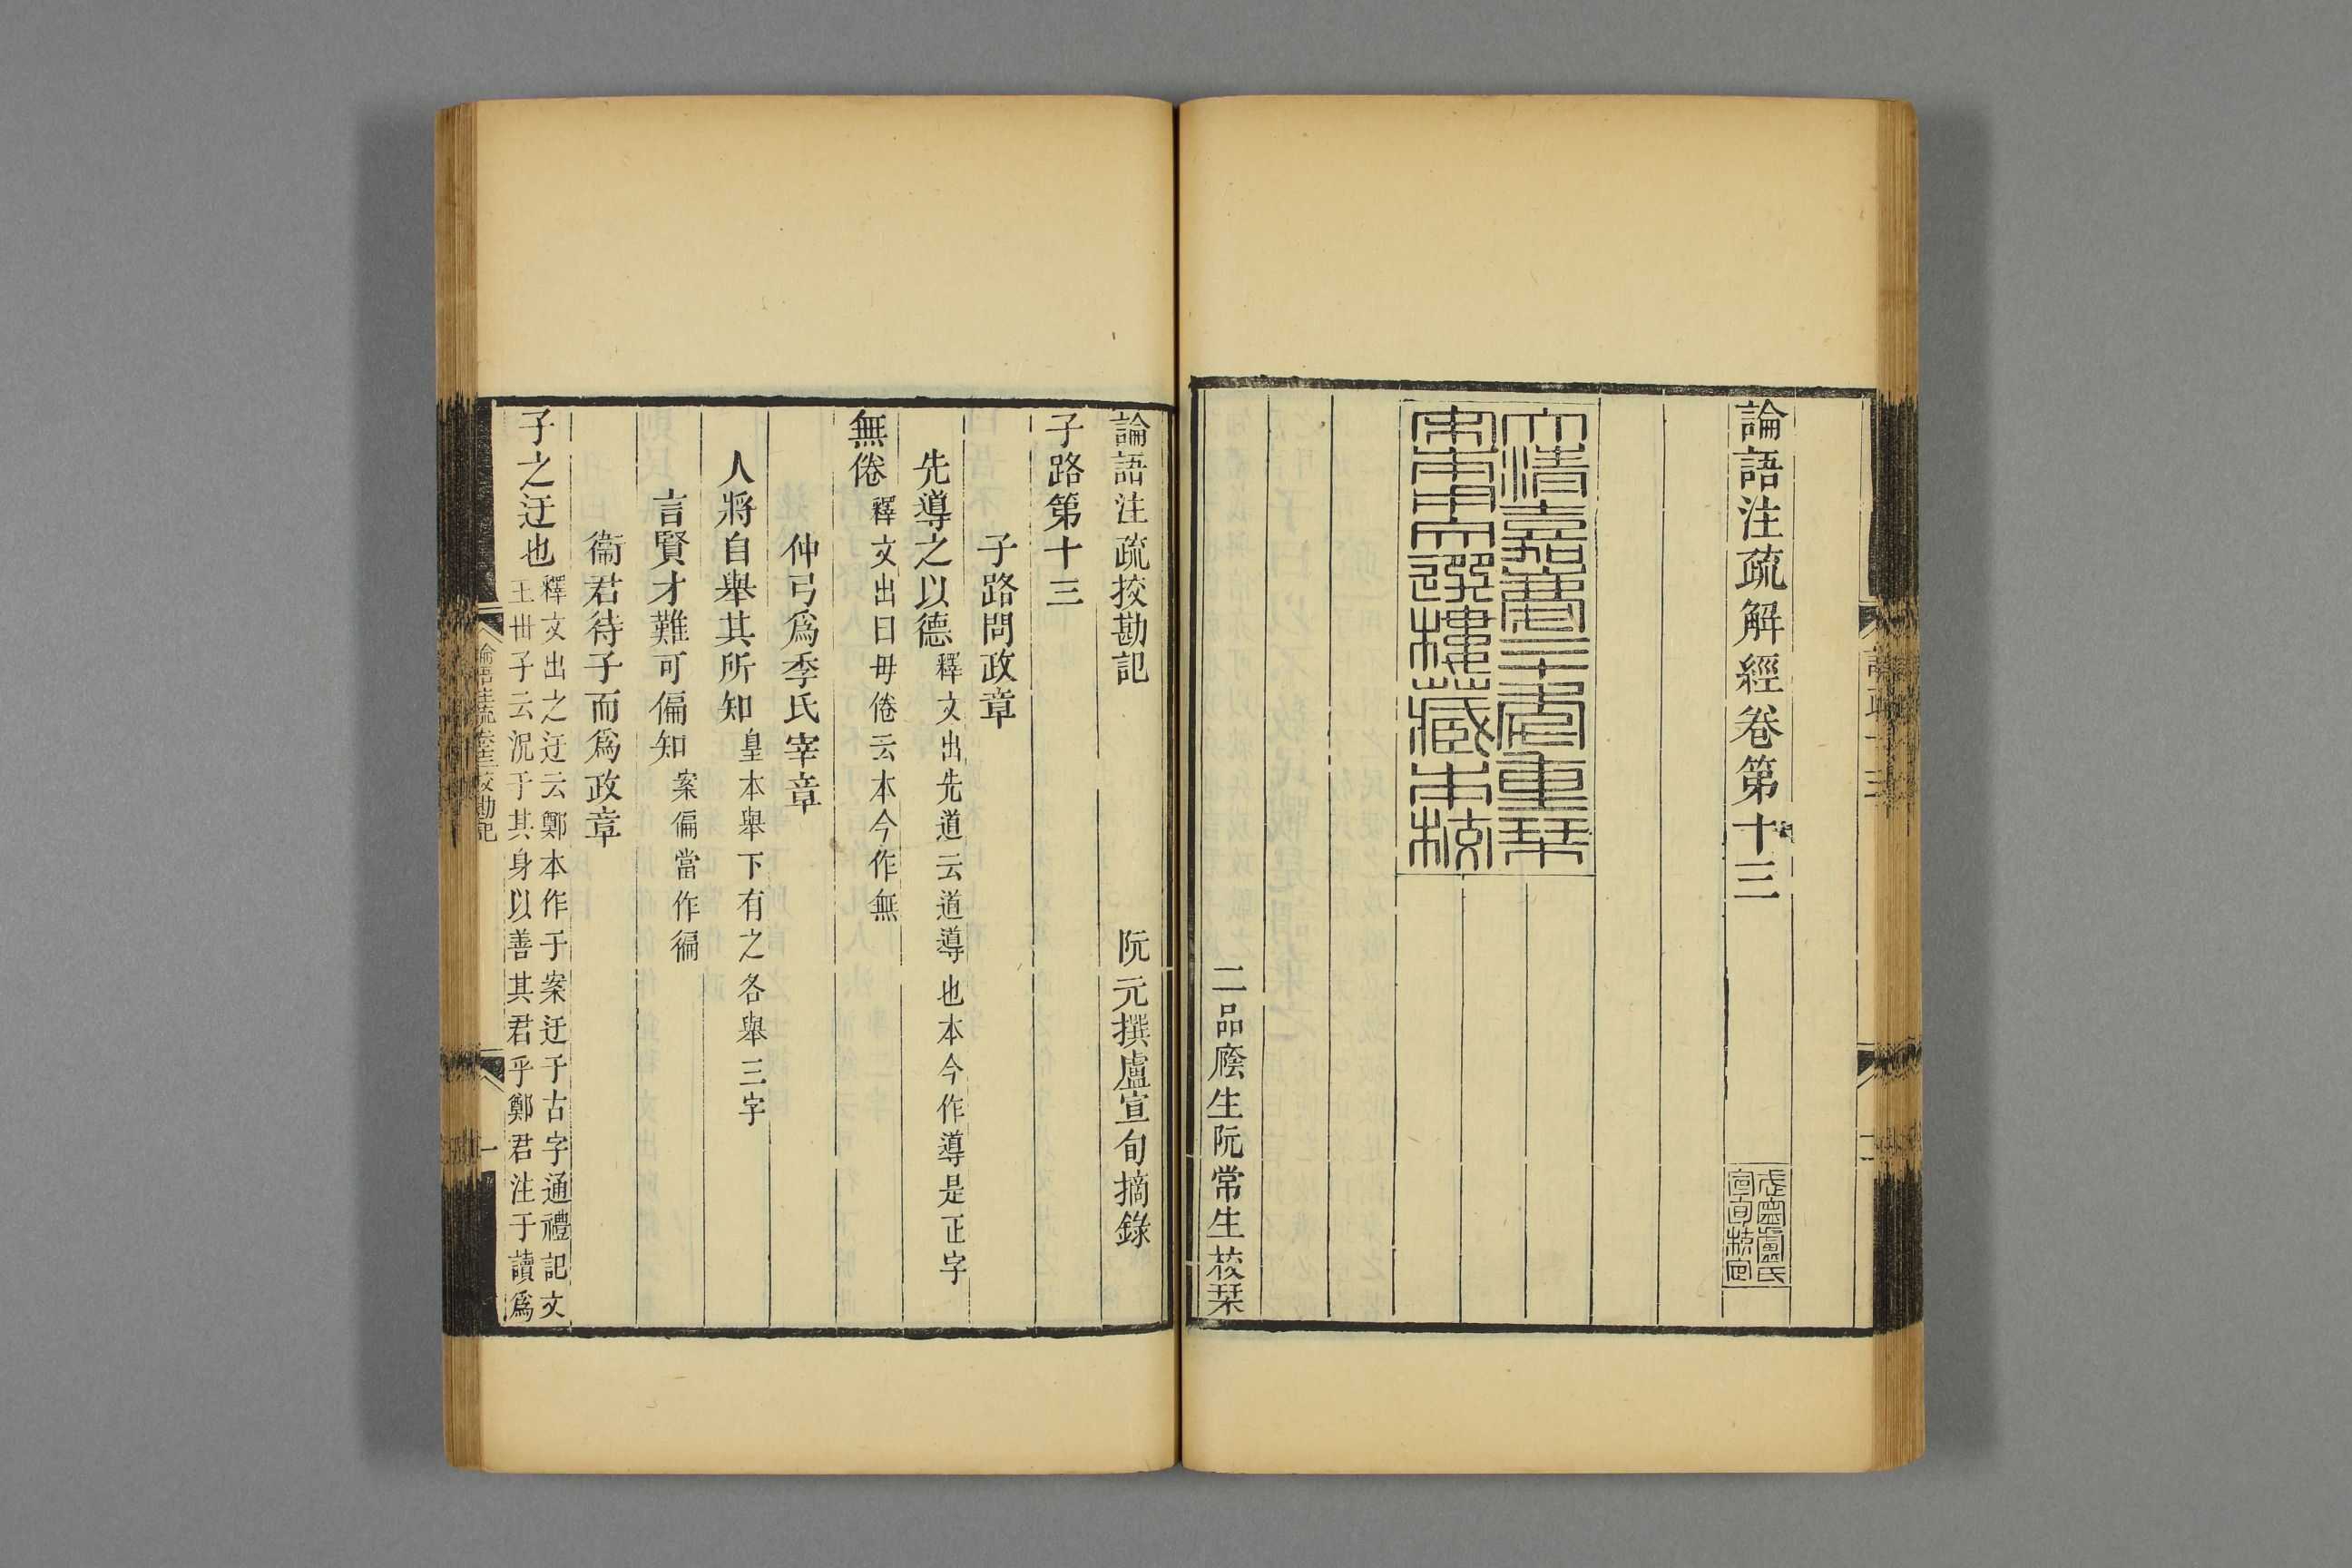 論語注疏解經卷第十三
武寧盧氏
宣旬校定
大清嘉慶二十年重栞
宋本用文選樓藏本校
二品廕生阮常生校栞
論語注疏挍勘記　阮元撰盧宣旬摘錄
子路第十三
子路問政章
先導之以德釋文出先道云道導也本今作導是正字
無倦釋文出曰毋倦云本今作無
仲弓爲季氏宰章
人將自舉其所知皇本舉下有之各舉三字
言賢才難可偏知案偏當作徧
衞君待子而爲政章
子之迂也釋文出之迂云鄭本作于案迂于古字通禮記文
王世子云況于其身以善其君乎鄭君注于讀爲
論語注疏卷十三校勘記
一